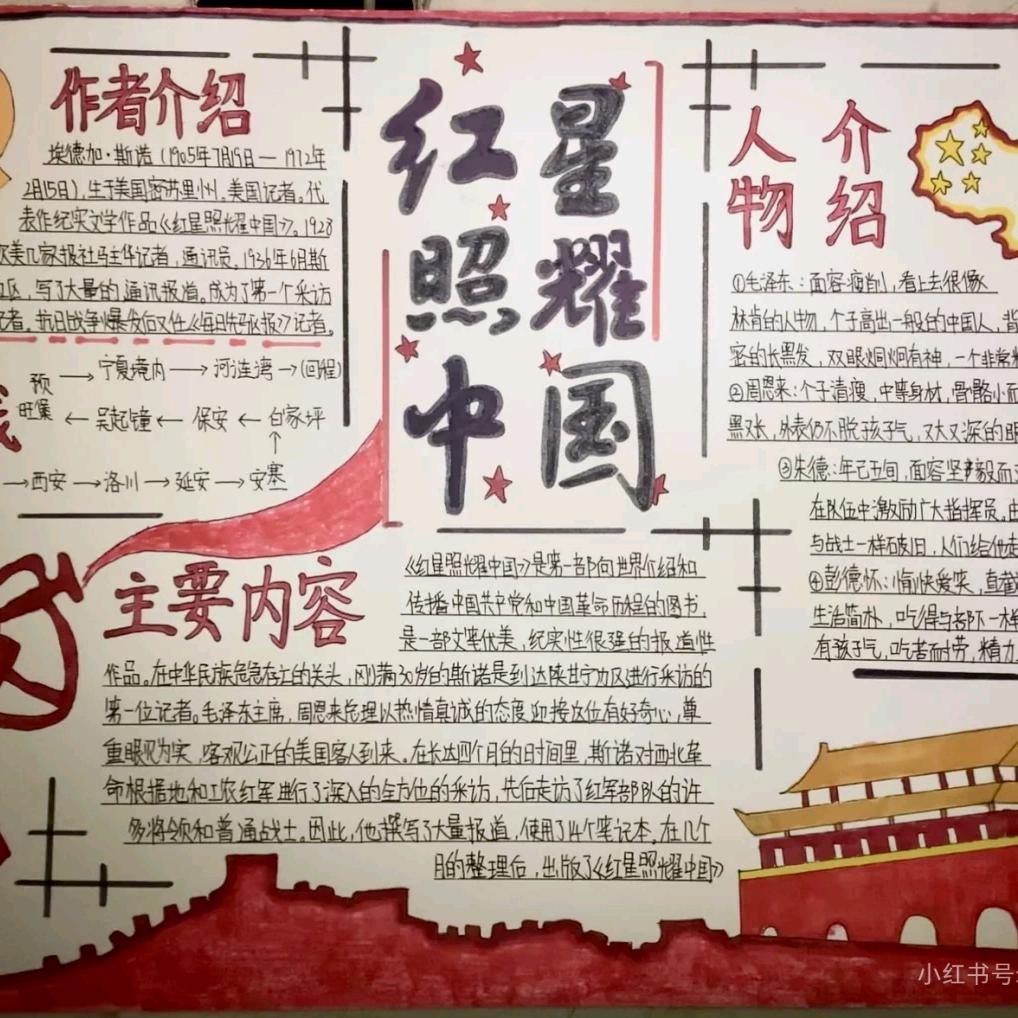 作者介绍
埃德加·斯诺(1905年7月19日—1972年
2月15日),生于美国密苏里州。美国记者。代
表作纪实文学作品《红星照耀中国》。1928
欧美几家报社驻华记者,通讯员。1936年6月斯
区,写了大量的通讯报道。成为了第一个采访
记者。抗日战争爆发后又任《每日先驱报》记者。
预
旺堡
宁夏境内→河连湾→(回程)
←吴起镇←保安←白家坪
→西安→洛川→延安→安塞
红星
照耀
中国
人物
介绍
①毛泽东:面容瘦削,看上去很像
林肯的人物,个子高出一般的中国人,背
密的长黑发,双眼炯炯有神,一个非常精
②周恩来:个子清瘦,中等身材,骨骼小而
黑又长,外表仍不脱孩子气,又大又深的眼
③朱德:年已五旬,面容坚毅而
在队伍中激励广大指挥员。由
与战士一样破旧,人们给他
④彭德怀:愉快爱笑,直
生活简朴,吃得与部下一样
有孩子气,吃苦耐劳,精力
主要内容
《红星照耀中国》是第一部向世界介绍和
传播中国共产党和中国革命历程的图书,
是一部文笔优美,纪实性很强的报道性
作品。在中华民族危急存亡的关头,刚满30岁的斯诺是到达陕甘宁边区进行采访的
第一位记者。毛泽东主席,周恩来总理以热情真诚的态度迎接这位有好奇心,尊
重眼见为实,客观公正的美国客人到来。在长达四个月的日时间里,斯诺对西北革
命根据地和工农红军进行了深入的全方位的采访,先后走访了红军部队的许
多将领和普通战士。因此,他撰写了大量报道,使用了14个笔记本。在几个
月的整理后,出版了《红星照耀中国》
小红书号: